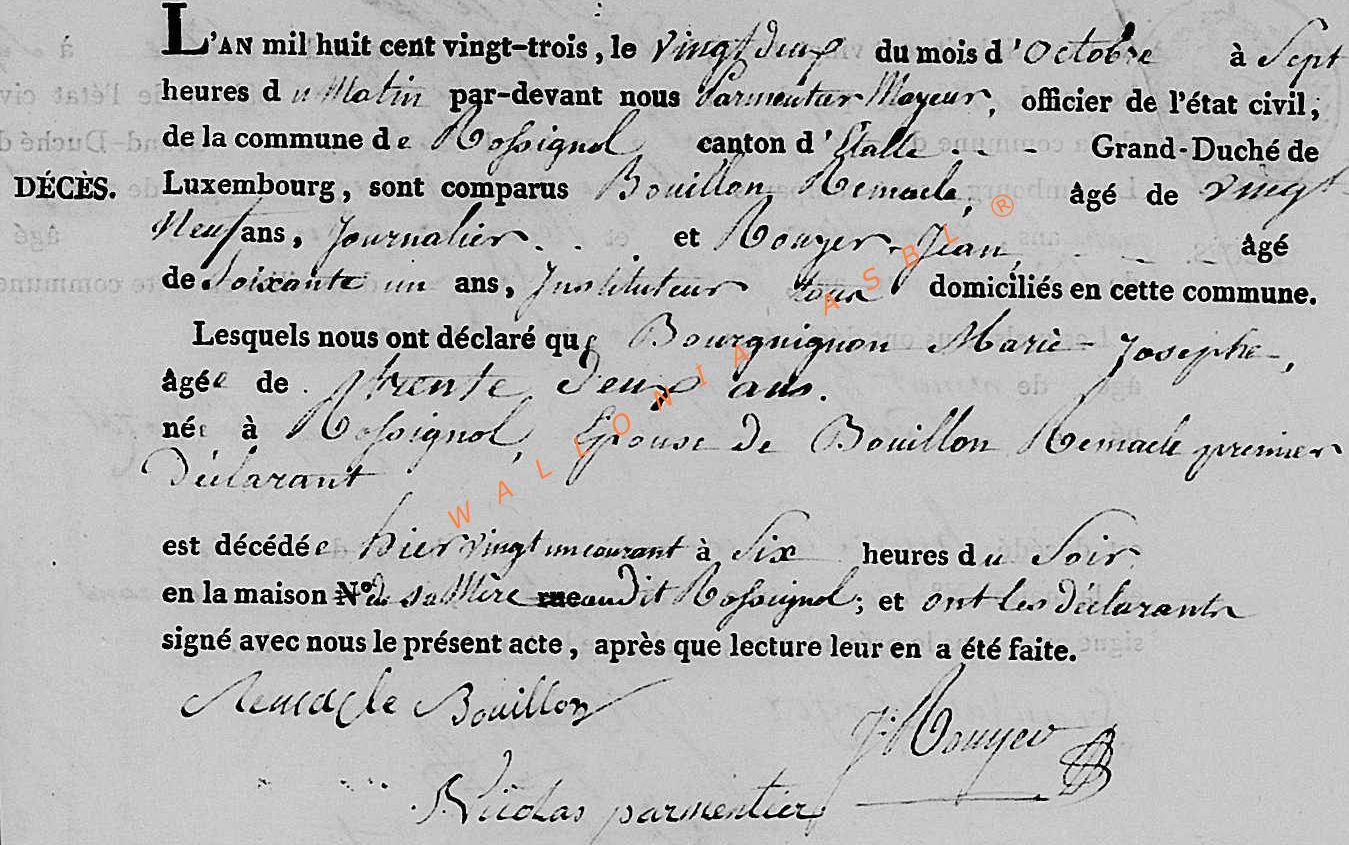 L'AN mil huit cent vingt-trois, le vingt deux du mois d'Octobre à Sept
heures du Matin par-devant nous Parmentier Mayeur, officier de l'état civil,
de la commune de Rossignol canton d'Etalle - - Grand-Duché de
DÉCÈS. Luxembourg, sont comparus Bouillon Remacle, âgé de vingt
Neuf ans, Journalier - - et Rouyer Jean, - - âgé
de Soixante un ans, Instituteur tous domiciliés en cette commune.
Lesquels nous ont déclaré que Bourguignon Marie-Josephe,
âgée de trente deux ans.
née à Rossignol, Epouse de Bouillon Remacle premier
Déclarant
est décédée hier vingt un courant à Six heures du Soir
en la maison N.° de sa Mère rue audit Rossignol; et ont les déclarants
signé avec nous le présent acte, après que lecture leur en a été faite.
Remacle Bouillon
J: Rouyer
Nicolas parmentier
WALLONIA ASBL ®